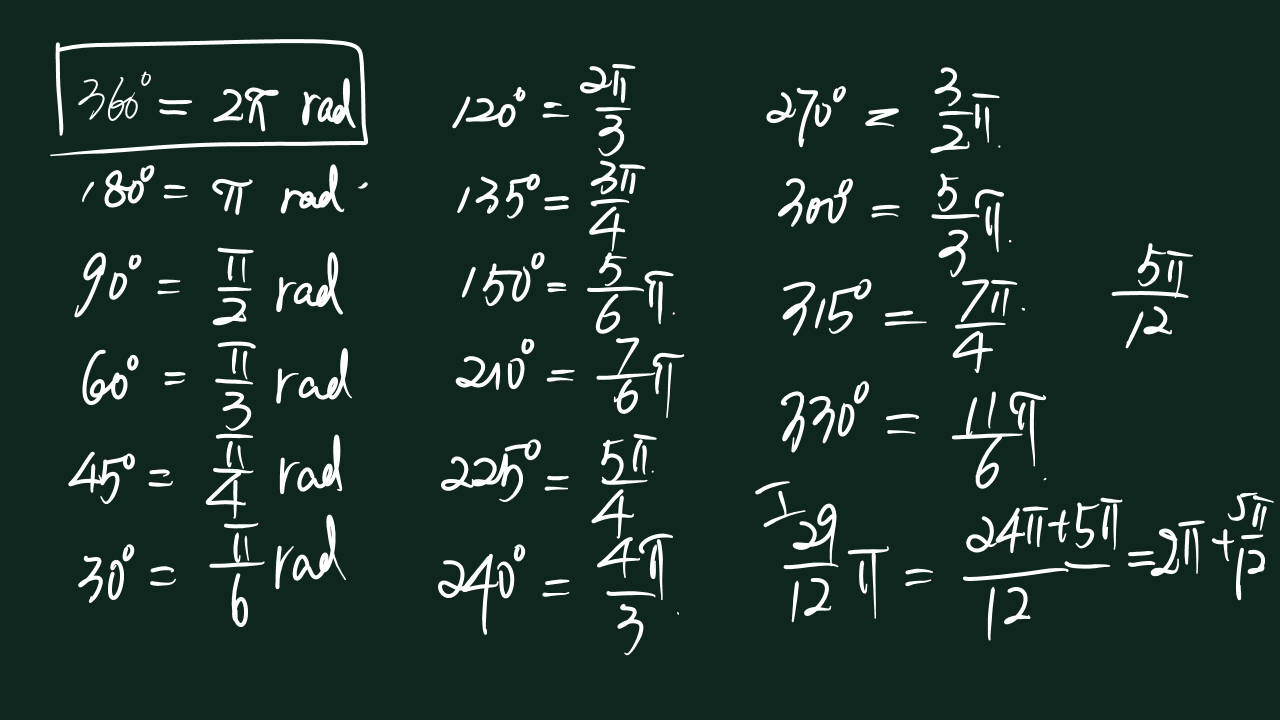 360° = 2π rad
180° = π rad
90° = π/2 rad
60° = π/3 rad
45° = π/4 rad
30° = π/6 rad
120° = 2π/3
135° = 3π/4
150° = 5/6 π
210° = 7/6 π
225° = 5π/4
240° = 4π/3
270° = 3/2 π
300° = 5/3 π
315° = 7π/4
330° = 11/6 π
29/12 π = (24π+5π)/12 = 2π + 5π/12
5π/12